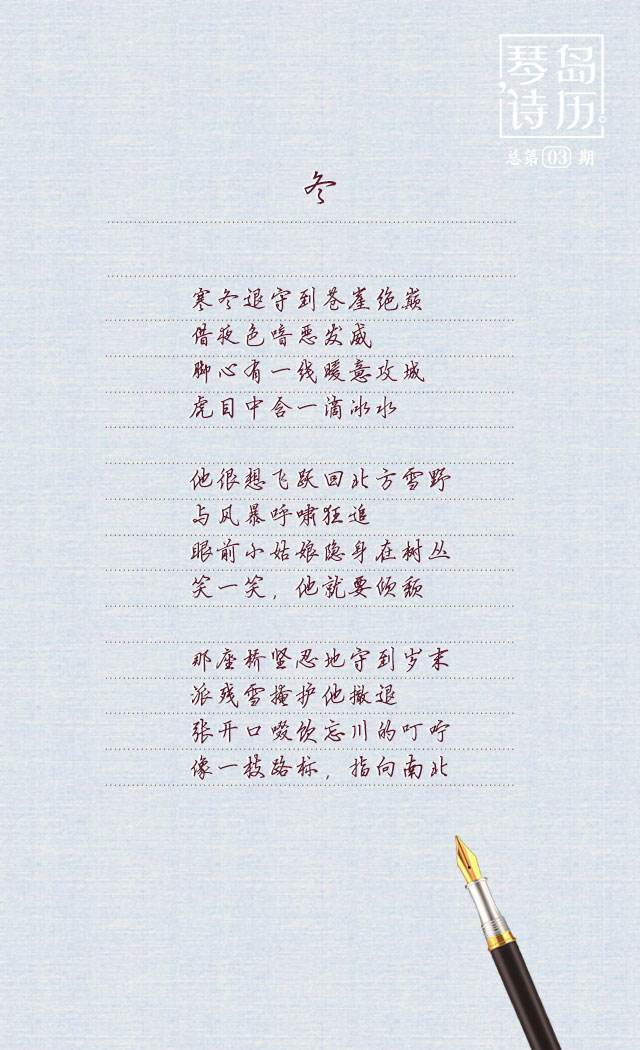 琴岛
诗历
总第03期
冬
寒冬退守到苍崖绝巅
借夜色喑恶发威
脚心有一线暖意攻城
虎目中含一滴冰水
他很想飞跃回北方雪野
与风暴呼啸狂追
眼前小姑娘隐身在树丛
笑一笑，他就要倾颓
那座桥坚忍地守到岁末
派残雪掩护他撤退
张开口啜饮忘川的叮咛
像一枝路标，指向南北